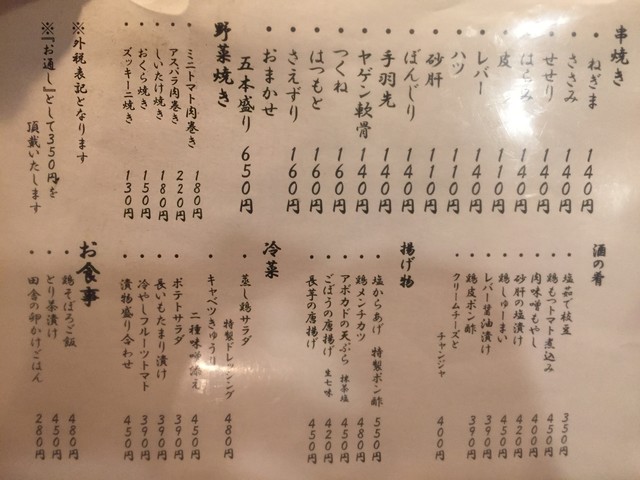 串焼き
・ねぎま 140円
・ささみ 140円
・せせり 140円
・はらみ 140円
・皮 110円
・レバー 110円
・ハツ 110円
・砂肝 110円
・ぼんじり 140円
・手羽先 140円
・ヤゲン軟骨 140円
・つくね 160円
・はつもと 160円
・さえずり 160円
・おまかせ
五本盛り 650円
野菜焼き
・ミニトマト肉巻き 180円
・アスパラ肉巻き 220円
・しいたけ焼き 180円
・おくら焼き 150円
・ズッキーニ焼き 130円
※外税表記となります
※『お通し』として350円を
頂戴いたします
酒の肴
・塩茹で枝豆 350円
・鶏もつトマト煮込み 450円
・肉味噌もやし 400円
・砂肝の塩漬け 420円
・鶏しゅーまい 450円
・レバー醤油漬け 390円
・鶏皮ポン酢 390円
・クリームチーズと
チャンジャ 400円
揚げ物
・塩からあげ 特製ポン酢 550円
・鶏メンチカツ 480円
・アボカドの天ぷら 抹茶塩 450円
・ごぼうの唐揚げ 生七味 420円
・長芋の唐揚げ 450円
冷菜
・蒸し鶏サラダ
特製ドレッシング 480円
・キャベツきゅうり
二種味噌添え 450円
・ポテトサラダ 390円
・長いもたまり漬け 390円
・冷やしフルーツトマト 390円
・漬物盛り合わせ 450円
お食事
・鶏そぼろご飯 480円
・とり茶漬け 450円
・田舎の卵かけごはん 280円